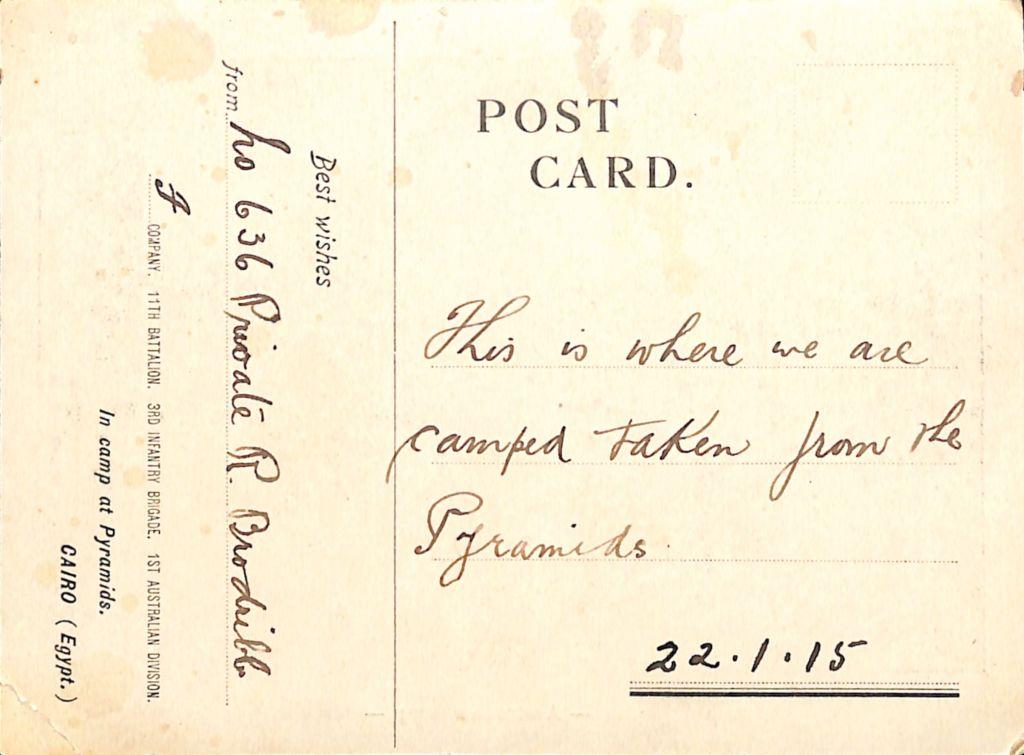 POST
CARD.
This is where we are
camped taken from the
Pyramids
22.1.15
Best wishes
from No 636 Private R. Brodribb
F COMPANY. 11TH BATTALION. 3RD INFANTRY BRIGADE. 1ST AUSTRALIAN DIVISION.
In camp at Pyramids.
CAIRO (Egypt.)